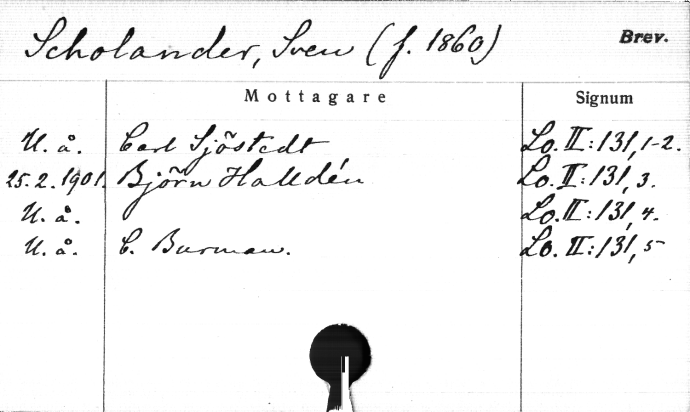 Scholander, Sven (f. 1860) Brev.
Mottagare Signum
U. å. Carl Sjöstedt Lo. II:131, 1-2.
25.2.1901. Björn Halldén Lo. II:131, 3.
U. å. Lo. II:131, 4.
U. å. C. Burman. Lo. II:131, 5